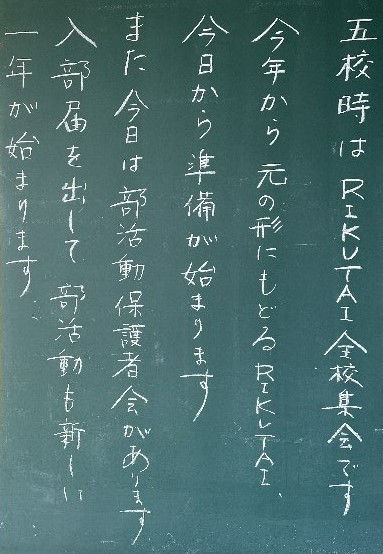 五校時はRIKUTAI全校集会です
今年から元の形にもどるRIKUTAI、
今日から準備が始まります
また今日は部活動保護者会があります
入部届を出して部活動も新しい
一年が始まります…